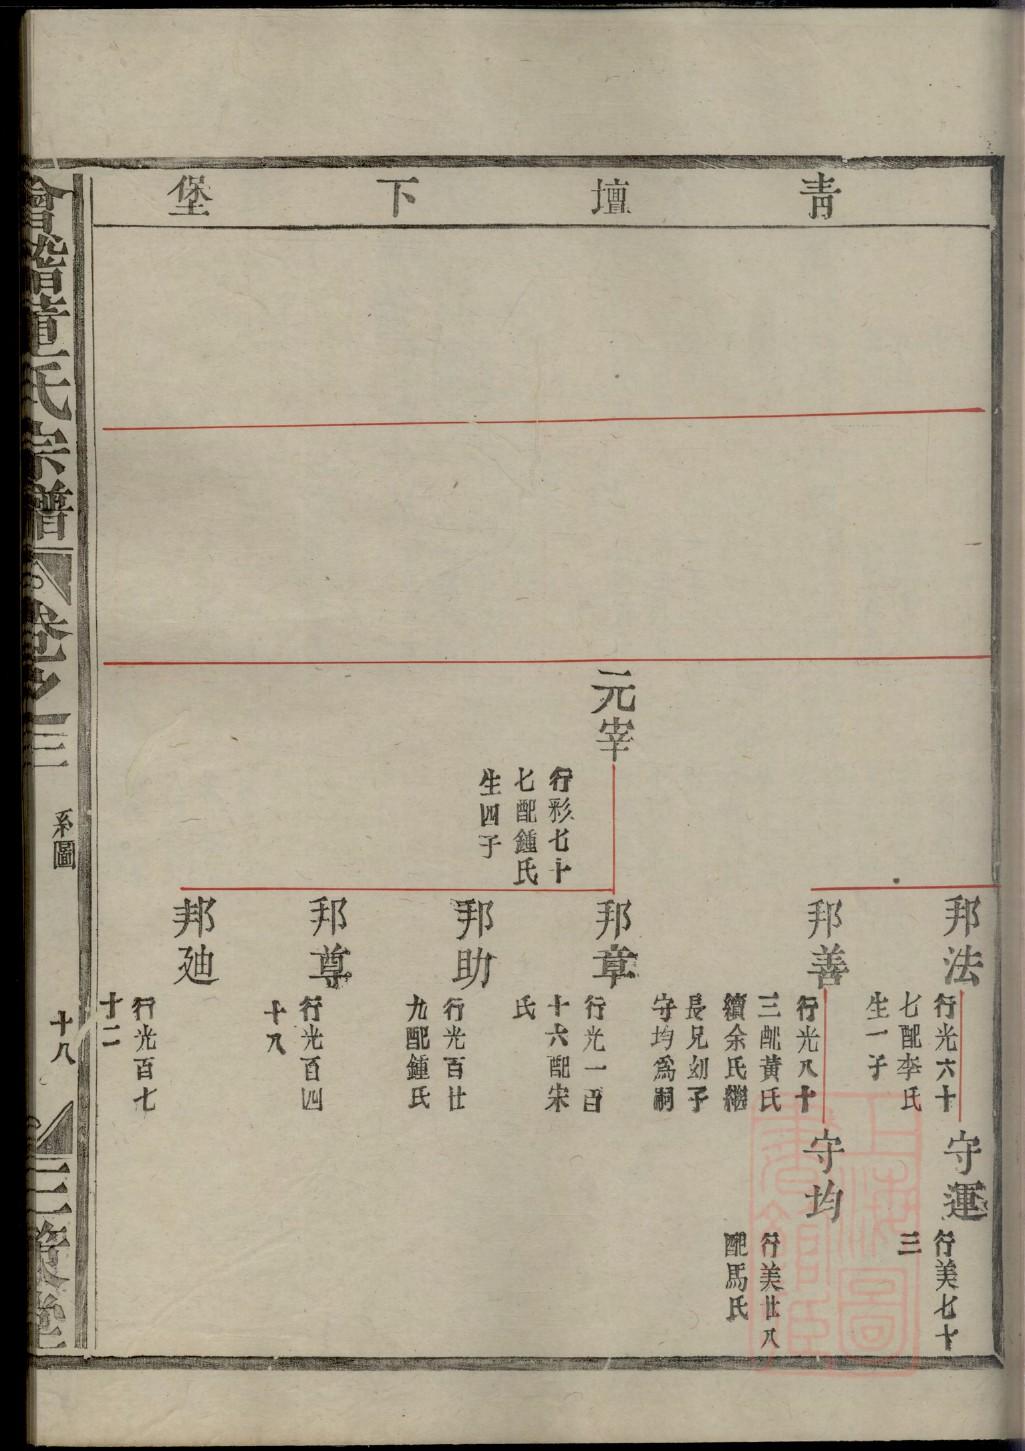 青壇下堡
邦法
行光六十
七配李氏
生一子
守運
行美七十
三
邦善
行光八十
三配黃氏
續余氏繼
長兄幼子
守均為嗣
守均
行美廿八
配馬氏
元宰
行彩七十
七配鍾氏
生四子
邦章
行光一百
十六配宋
氏
邦助
行光百廿
九配鍾氏
邦尊
行光百四
十八
邦廸
行光百七
十二
會稽董氏宗譜
卷之三
系圖
十八
三策堂
上海圖書館藏